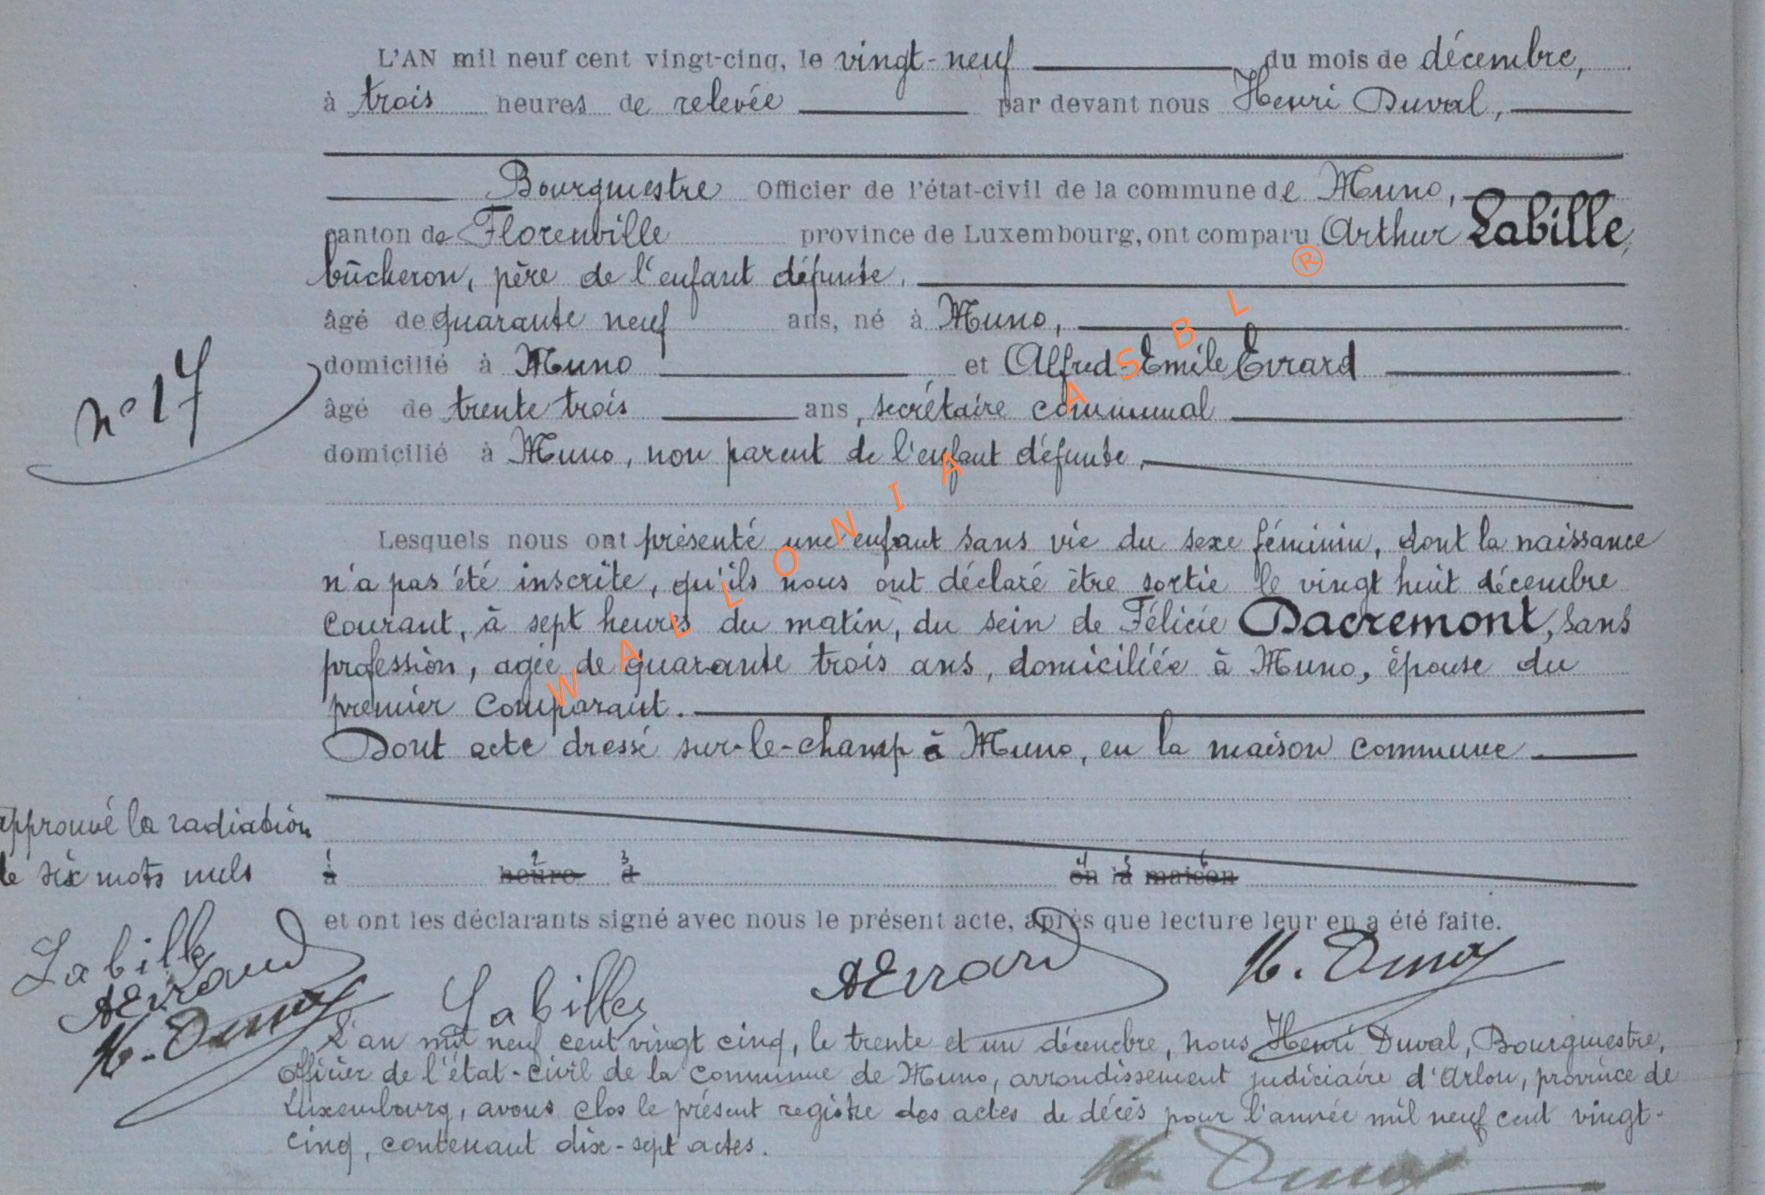 L'AN mil neuf cent vingt-cinq, le vingt-neuf du mois de décembre,
à trois heures de relevée par devant nous Henri Duval,
Bourgmestre Officier de l'état-civil de la commune de Muno,
canton de Florenville province de Luxembourg, ont comparu Arthur Labille,
bûcheron, père de l'enfant défunte,
âgé de quarante neuf ans, né à Muno,
n° 17
domicilié à Muno et Alfred-Emile Evrard
âgé de trente trois ans, secrétaire communal
domicilié à Muno, non parent de l'enfant défunte,
Lesquels nous ont présenté une enfant sans vie du sexe féminin, dont la naissance
n'a pas été inscrite, qu'ils nous ont déclaré être sortie le vingt huit décembre
courant, à sept heures du matin, du sein de Félicie Dacremont, sans
profession, agée de quarante trois ans, domiciliée à Muno, épouse du
premier comparant.
Dont acte dressé sur-le-champ à Muno, en la maison commune
approuvé la radiation
de six mots nuls
1 2 3 4 5 6
à heure à en la maison
et ont les déclarants signé avec nous le présent acte, après que lecture leur en a été faite.
Labille
AEvrard
H. Duval
Labille AEvrard H. Duval
L'an mil neuf cent vingt cinq, le trente et un décembre, nous Henri Duval, Bourgmestre,
officier de l'état-civil de la commune de Muno, arrondissement judiciaire d'Arlon, province de
Luxembourg, avons clos le présent registre des actes de décès pour l'année mil neuf cent vingt-
cinq, contenant dix-sept actes.
H. Duval
WALLONIA ASBL ®